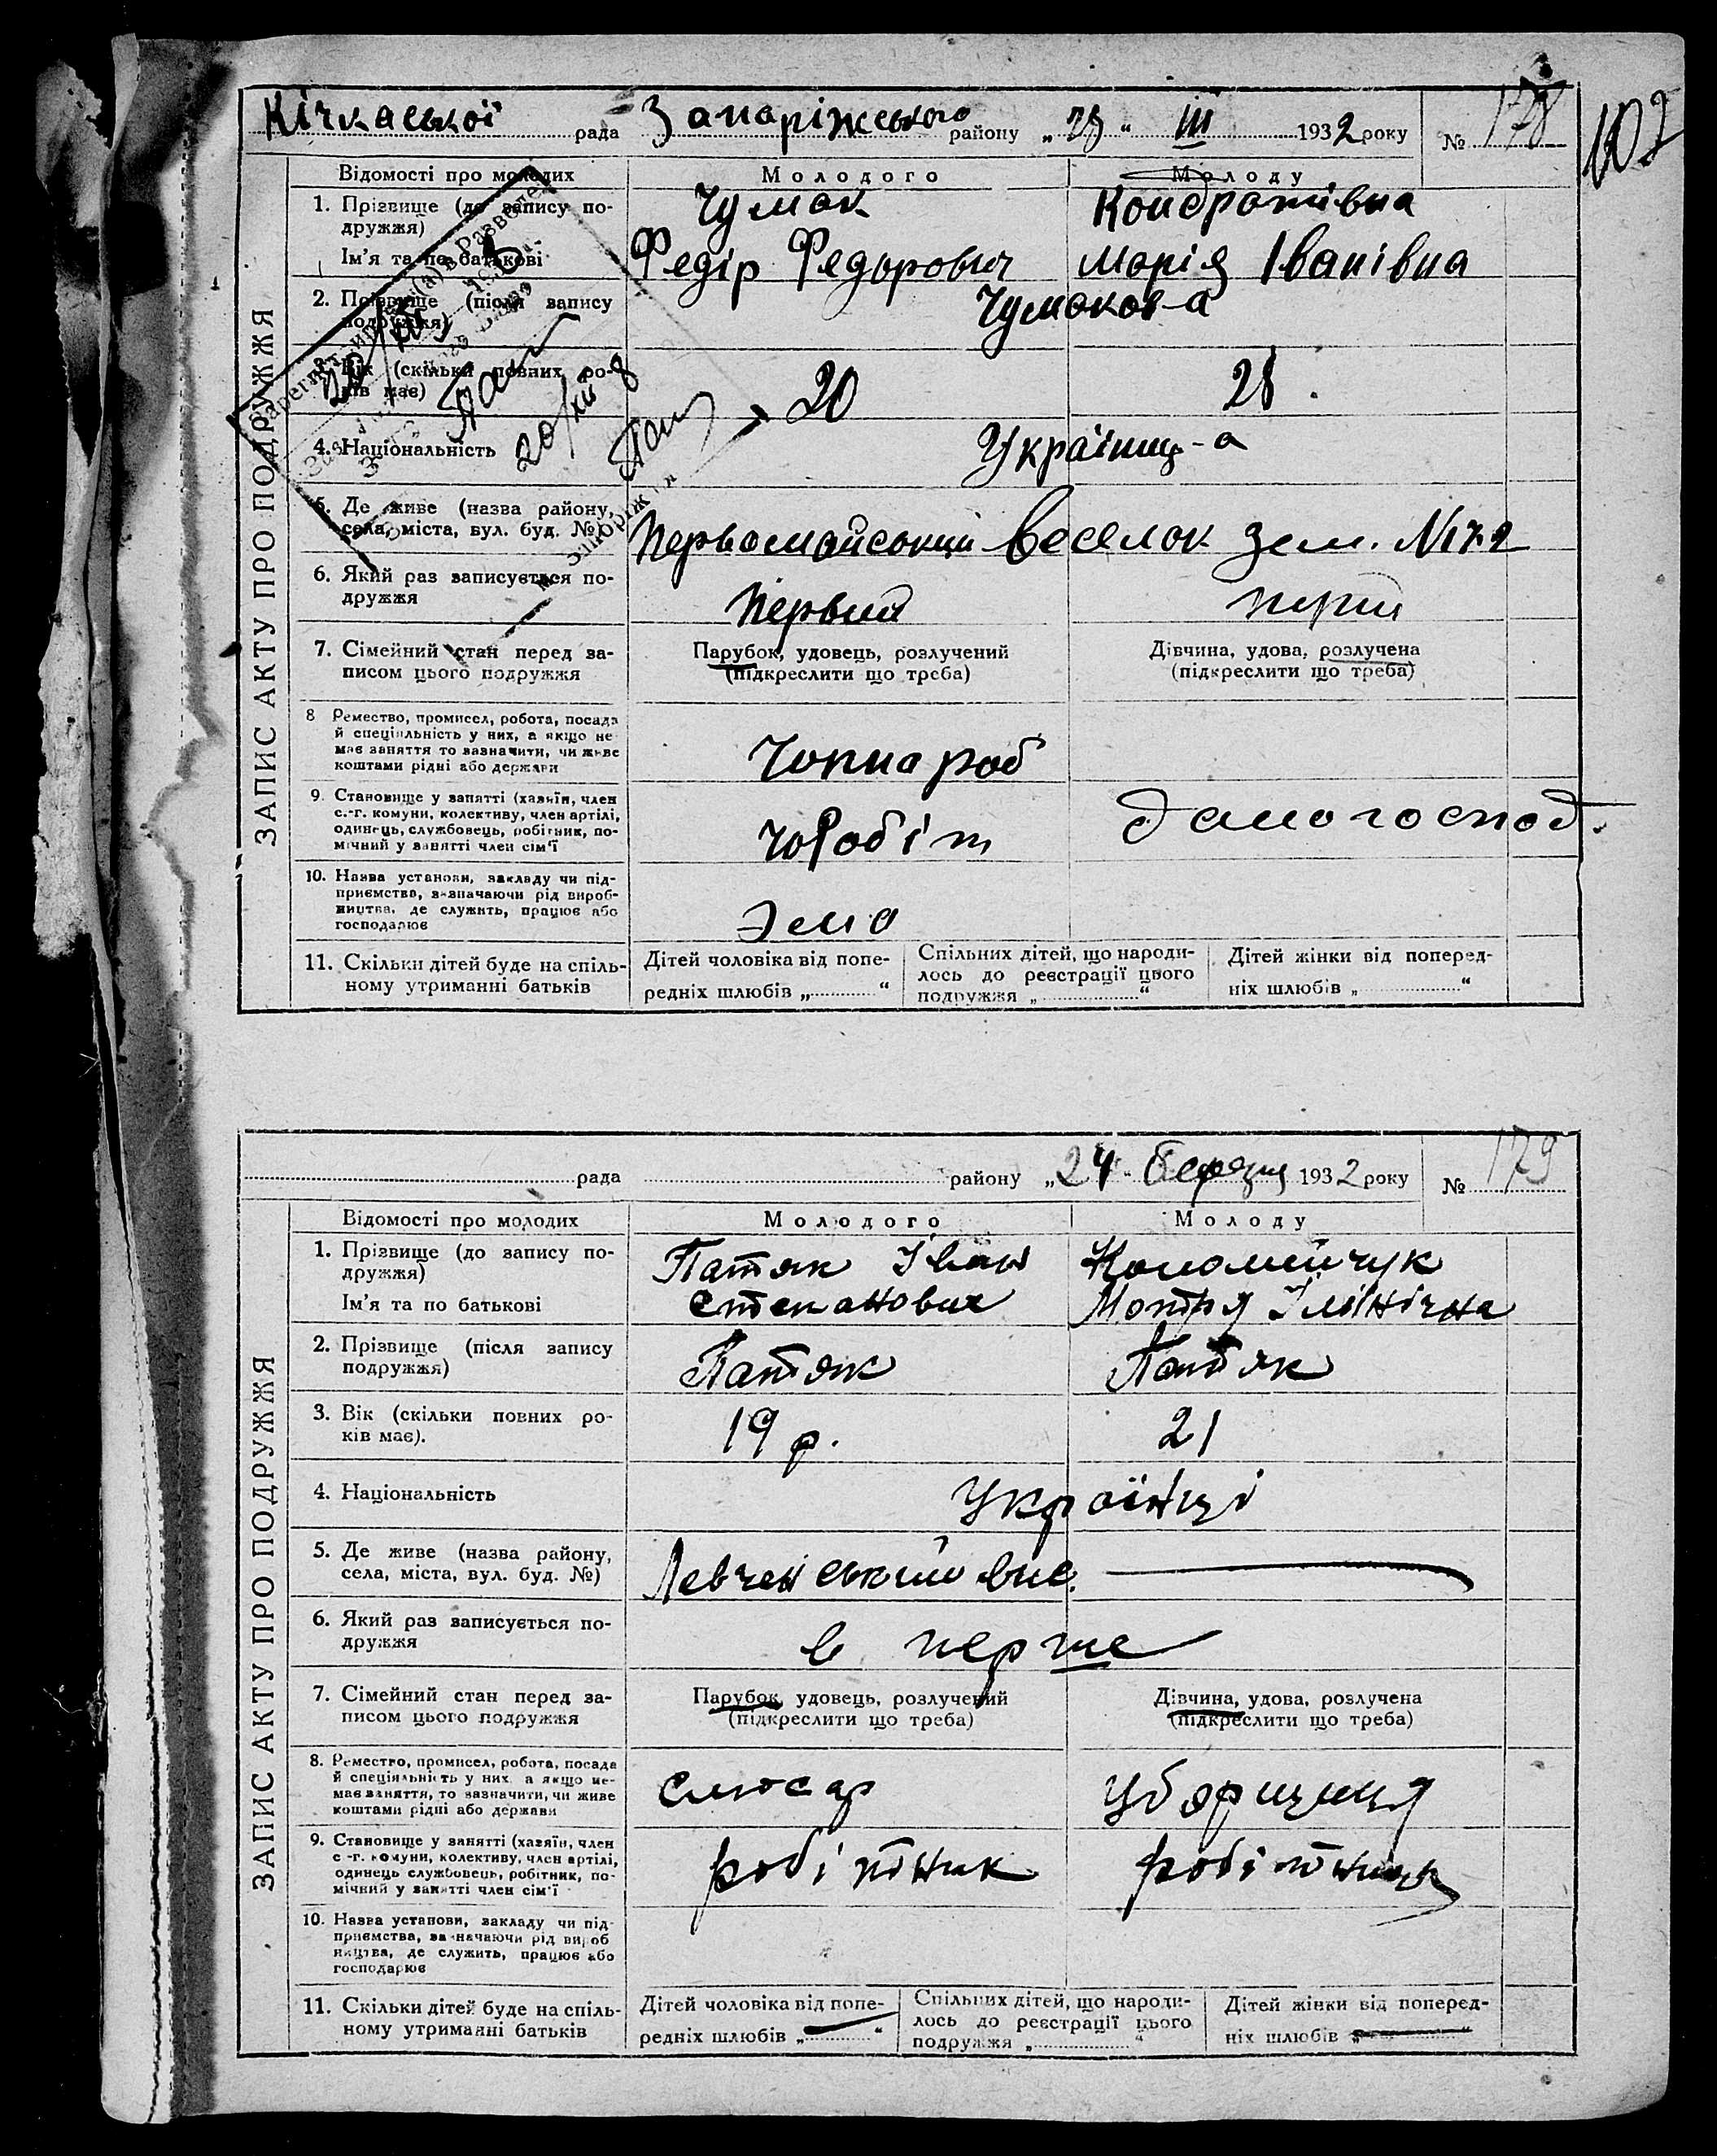 Кічкаської рада Запаріжського району „ “ III 1932 року № 178
107
ЗАПИС АКТУ ПРО ПОДРУЖЖЯ
Відомості про молодих Молодого Молоду
1. Прізвище (до запису по-
дружжя) Чумак Кондратівна
Ім'я та по батькові Федір Федорович Марія Іванівна
2. Прізвище (після запису
подружжя) Чумаков-а
Вік (скільки повних ро-
ків має) 20
4. Національність Українц-а
5. Де живе (назва району,
села, міста, вул. буд. №) Первомайський Веселок зем. №
6. Який раз записується по-
дружжя Первий перш
7. Сімейний стан перед за-
писом цього подружжя
Парубок, удовець, розлучений
(підкреслити що треба)
Дівчина, удова, розлучена
(підкреслити що треба)
8 Ремество, промисел, робота, посада
й спеціяльність у них, а якщо не
має заняття то зазначити, чи живе
коштами рідні або держави
Чорнороб
9. Становище у занятті (хазяїн, член
с.-г. комуни, колективу, член артілі,
одинець, службовець, робітник, по-
мічний у занятті член сім'ї
чоРобіт
домогоспод.
10. Назва установи, закладу чи під-
приємства, зазначаючи рід вироб-
ництва, де служить, працює або
господарює
11. Скільки дітей буде на спіль-
ному утриманні батьків
Дітей чоловіка від попе-
редніх шлюбів „ “
Спільних дітей, що народи-
лось до реєстрації цього
подружжя „ “
Дітей жінки від поперед-
ніх шлюбів „ “
20/XII 8
рада району „24“ березня 1932 року № 179
ЗАПИС АКТУ ПРО ПОДРУЖЖЯ
Відомості про молодих Молодого Молоду
1. Прізвище (до запису по-
дружжя) Патяк Іван Коломийчук
Ім'я та по батькові Степанович Мотря Іллінічна
2. Прізвище (після запису
подружжя) Патяк Патяк
3. Вік (скільки повних ро-
ків має). 19 р. 21
4. Національність Українці
5. Де живе (назва району,
села, міста, вул. буд. №) Левченський вис.
6. Який раз записується по-
дружжя в перше
7. Сімейний стан перед за-
писом цього подружжя
Парубок, удовець, розлучений
(підкреслити що треба)
Дівчина, удова, розлучена
(підкреслити що треба)
8. Ремество, промисел, робота, посада
й спеціяльність у них, а якщо не-
має заняття, то зазначити, чи живе
коштами рідні або держави
слюсар уборщиця
9. Становище у занятті (хазяїн, член
с-г. комуни, колективу, член артілі,
одинець службовець, робітник, по-
мічний у занятті член сім'ї
робітник робітниця
10. Назва установи, закладу чи під-
приємства, зазначаючи рід вироб
ництва, де служить, працює або
господарює
11. Скільки дітей буде на спіль-
ному утриманні батьків
Дітей чоловіка від попе-
редніх шлюбів „ “
Спільних дітей, що народи-
лось до реєстрації цього
подружжя „ “
Дітей жінки від поперед-
ніх шлюбів „ “